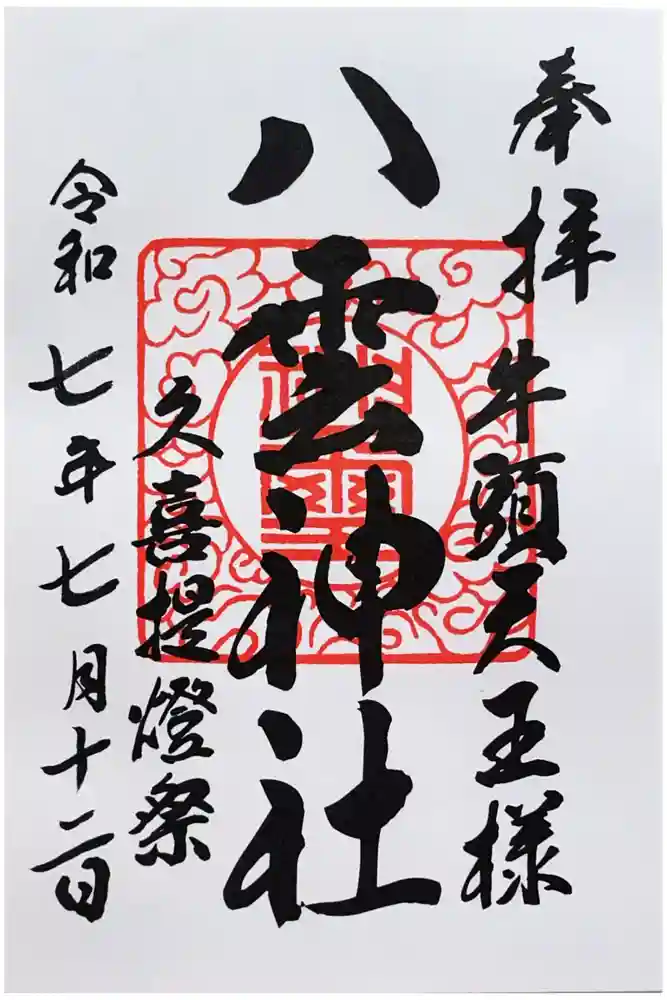 奉拝 牛頭天王様
八雲神社
久喜提燈祭
令和七年七月十二日